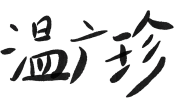 温广珍